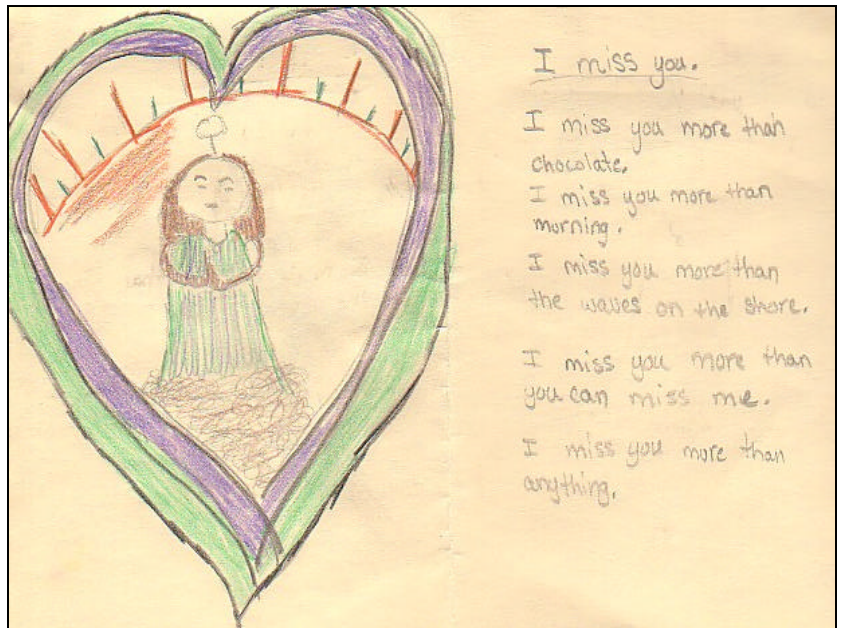 I miss you.
I miss you more than
chocolate.
I miss you more than
morning.
I miss you more than
the waves on the shore.
I miss you more than
you can miss me.
I miss you more than
anything.